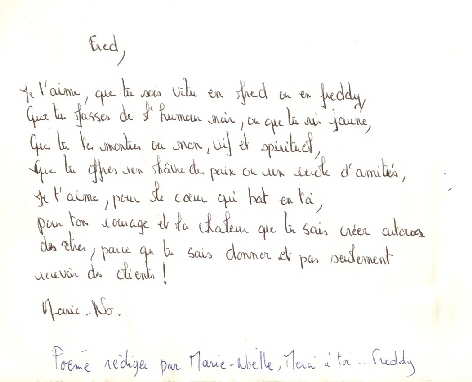 Fred,
Je t'aime, que tu sois vêtu en fred ou en freddy,
Que tu fasses de l'humour noir, ou que tu ris jaune,
Que tu te montres ou non, vif et spirituel,
Que tu offres un havre de paix ou un cercle d'amitiés,
Je t'aime, pour le cœur qui bat en toi,
pour ton courage et la chaleur que tu sais créer autour
des êtres, parce que tu sais donner et pas seulement
recevoir des clients !
Marie-No.
Poème rédiger par Marie-Noëlle, Merci à toi... Freddy